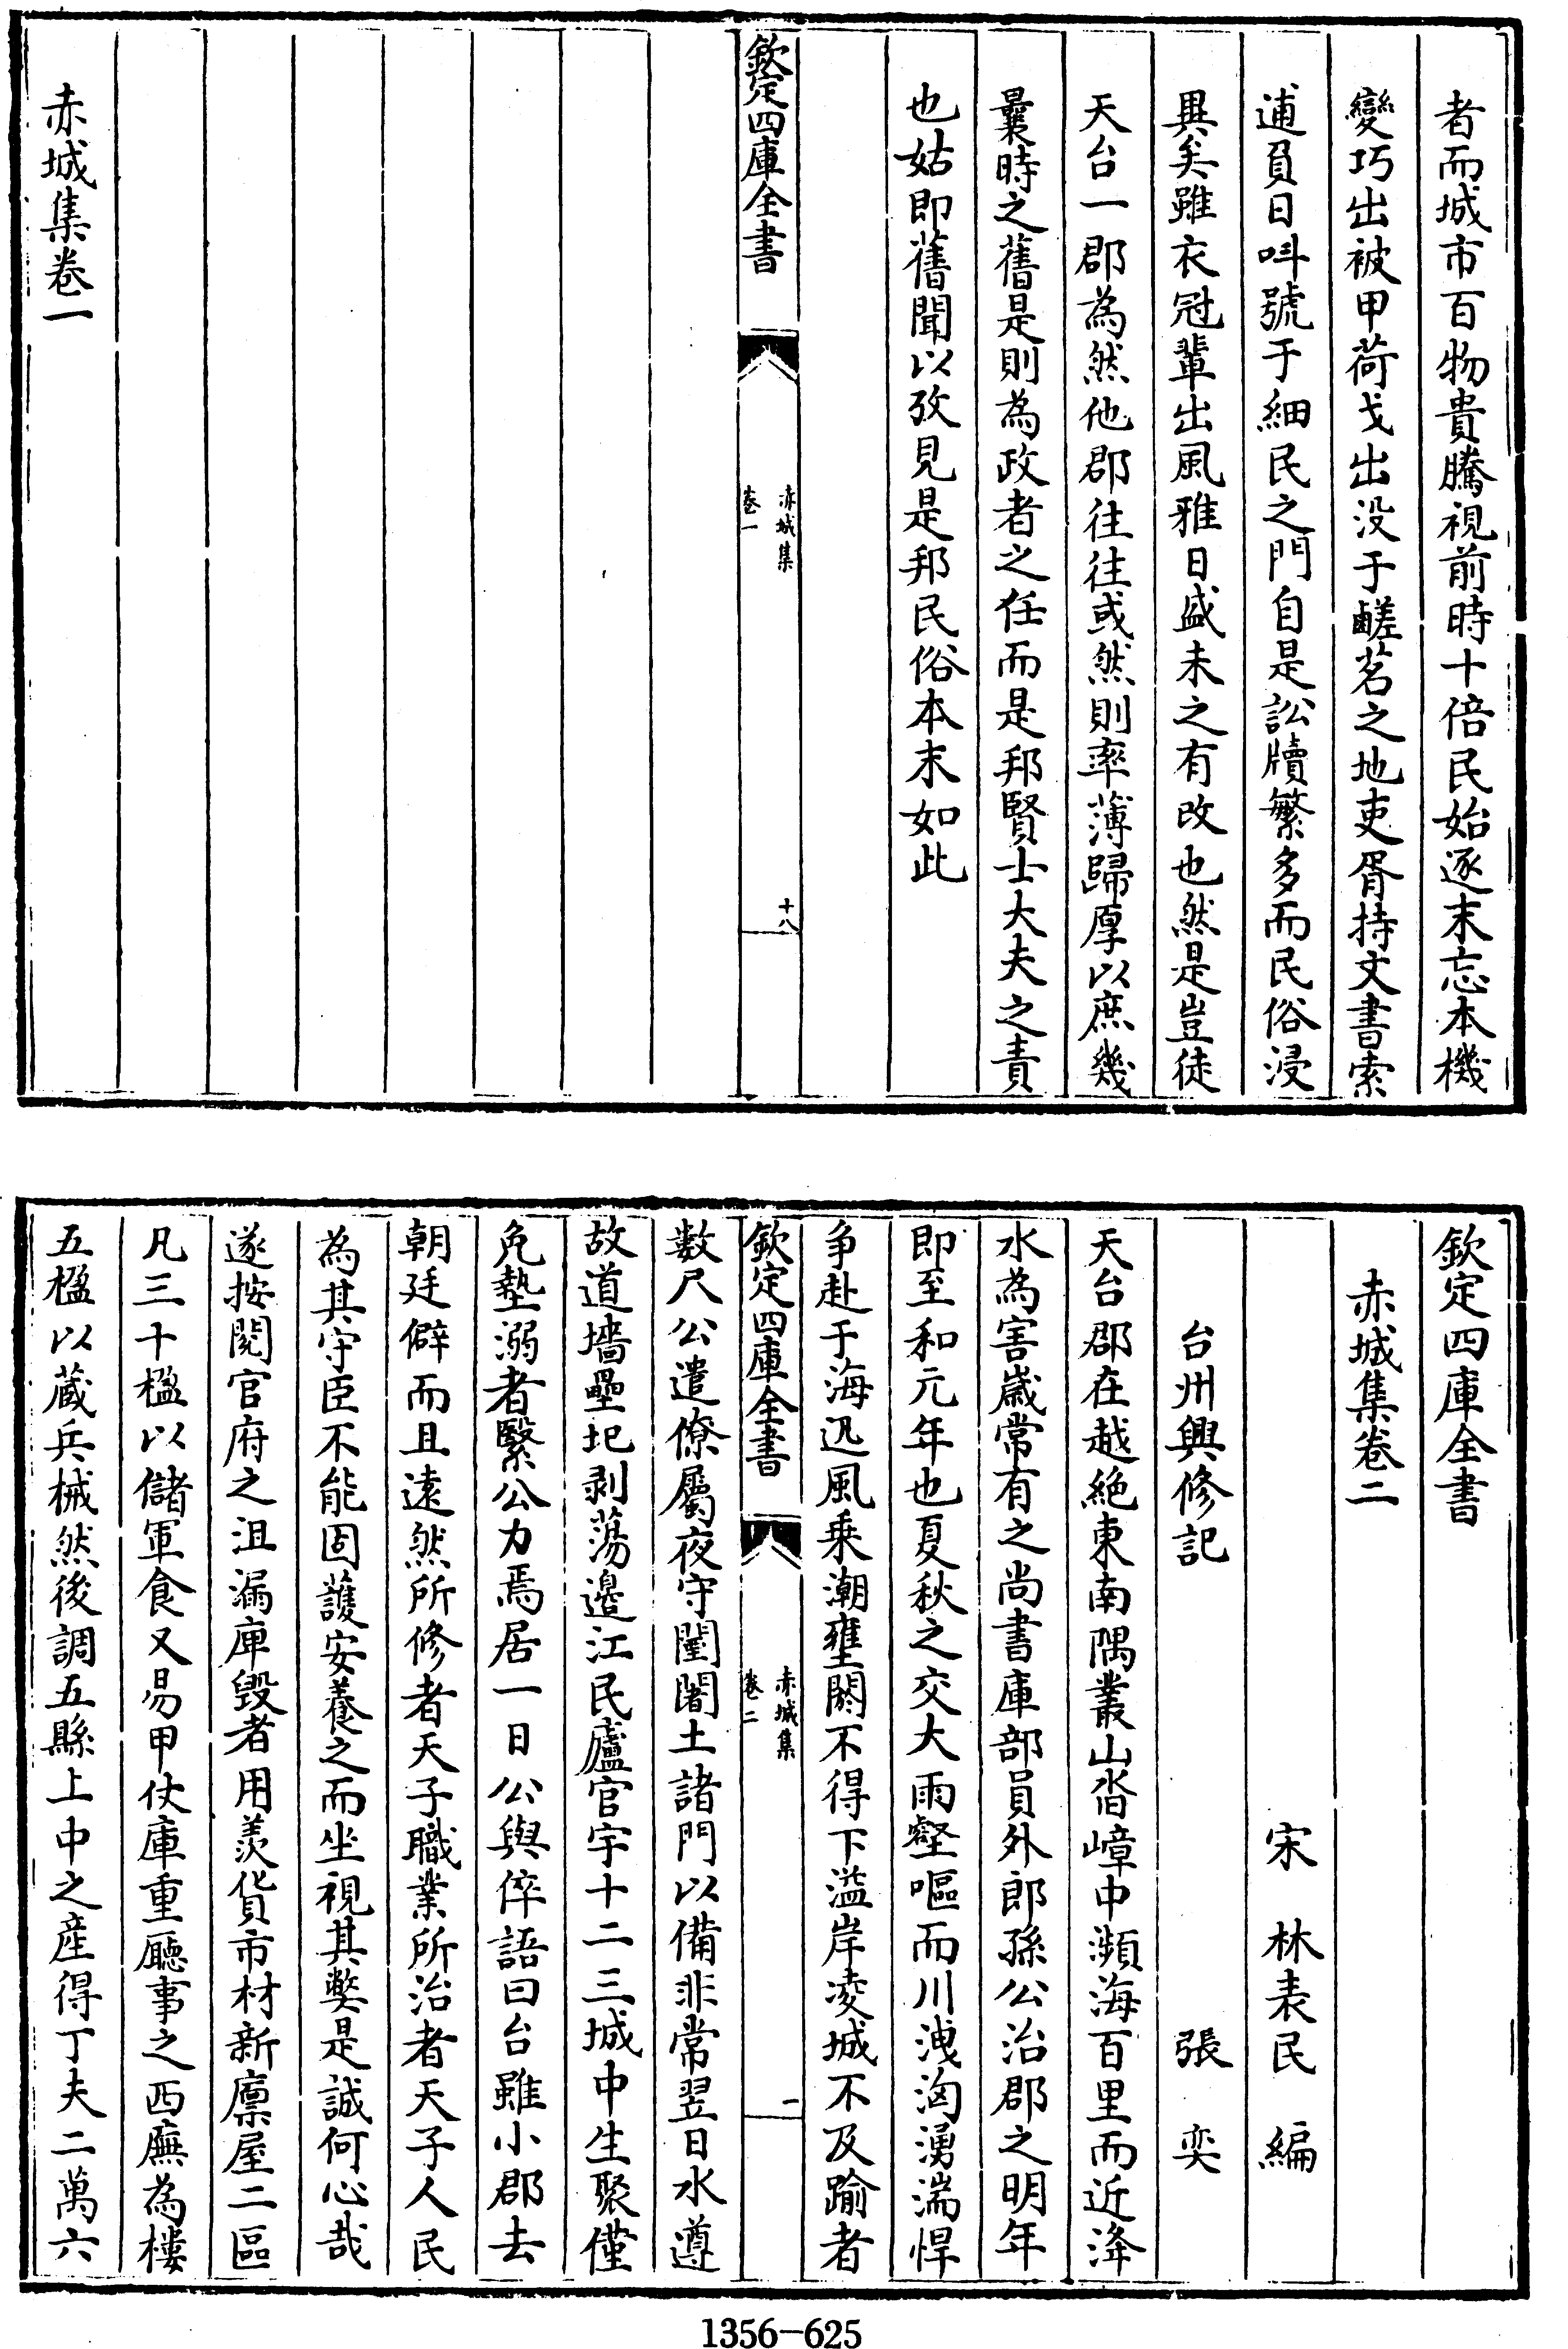 者而城市百物貴騰視前時十倍民始逐末忘本機
變巧出被甲荷戈出没于鹺茗之地吏胥持文書索
逋負日呌號于細民之門自是訟牘繁多而民俗浸
異矣雖衣冠輩出風雅日盛未之有改也然是豈徒
天台一郡為然他郡往往或然則率薄歸厚以庶幾
曩時之舊是則為政者之任而是邦賢士大夫之責
也姑即舊聞以攷見是邦民俗本末如此
欽定四庫全書
赤城集
卷一
十八
赤城集卷一
欽定四庫全書
赤城集卷二
宋 林表民 編
台州興修記 張奕
天台郡在越絶東南隅叢山沓嶂中瀕海百里而近洚
水為害歲常有之尚書庫部員外郎孫公治郡之明年
即至和元年也夏秋之交大雨壑嘔而川洩洶湧湍悍
争赴于海迅風乗潮壅閼不得下溢岸凌城不及踰者
欽定四庫全書
赤城集
卷二
一
數尺公遣僚屬夜守闉闍土諸門以備非常翌日水遵
故道墻壘圮剥蕩邉江民廬官宇十二三城中生聚僅
免墊溺者繄公力焉居一日公與倅語曰台雖小郡去
朝廷僻而且遠然所修者天子職業所治者天子人民
為其守臣不能固護安養之而坐視其獘是誠何心哉
遂按閱官府之沮漏庳毁者用羨貨市材新廪屋二區
凡三十楹以儲軍食又易甲仗庫重廳事之西廡為樓
五楹以藏兵械然後調五縣上中之産得丁夫二萬六
1356-625